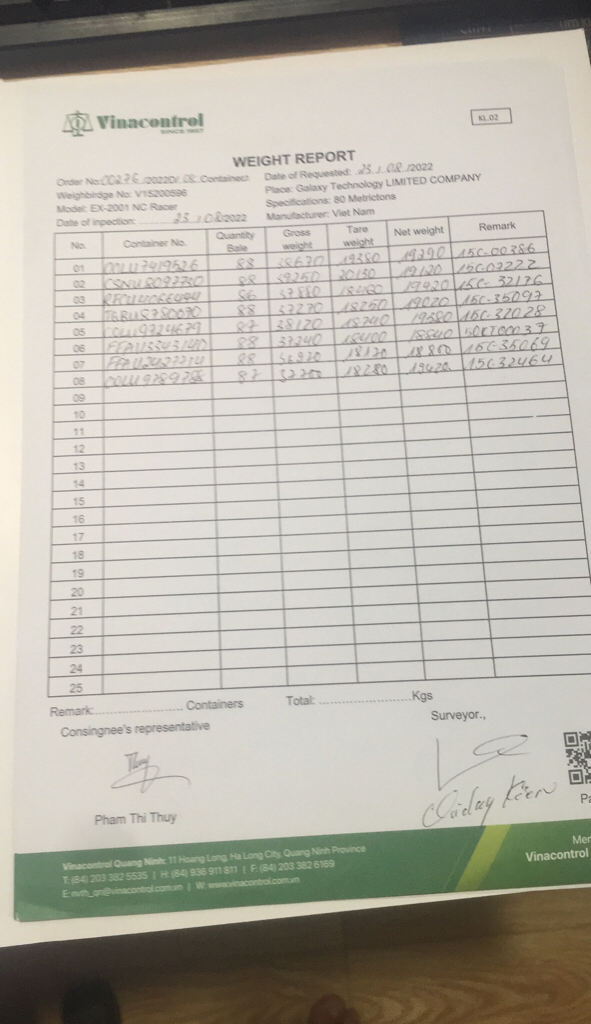 Vinacontrol
SINCE 1957
KL.02
WEIGHT REPORT
Order No:00276/2022D/08 Containers
Date of Requested: 23/08/2022
Weighbirdge No: V15200596
Place: Galaxy Technology LIMITED COMPANY
Model: EX-2001 NC Racer
Specifications: 80 Metrictons
Date of inpection: 23/08/2022
Manufacturer: Viet Nam
No. Container No. Quantity Bale Gross weight Tare weight Net weight Remark
01 88 38670 19380 19290 15C-00386
02 88 39250 20130 19120
03 86 19420 15C-32176
04 88 37270 18250 19020 15C-35097
05 87 38120 18740 19380 15C-37028
06 88 37240 18400 18840
07 88 18860 15C-35069
08 87 37700 18280 19420 15C32464
09
10
11
12
13
14
15
16
17
18
19
20
21
22
23
24
25
Remark:........................ Containers Total: ........................Kgs
Consingnee's representative
Surveyor.,
Thuy
Pham Thi Thuy
Vinacontrol Quang Ninh: 11 Hoang Long, Ha Long City, Quang Ninh Province
T: (84) 203 382 5535 | H: (84) 936 911 811 | F: (84) 203 382 6189
E: nvth_qn@vinacontrol.com.vn | W: www.vinacontrol.com.vn
Vinacontrol